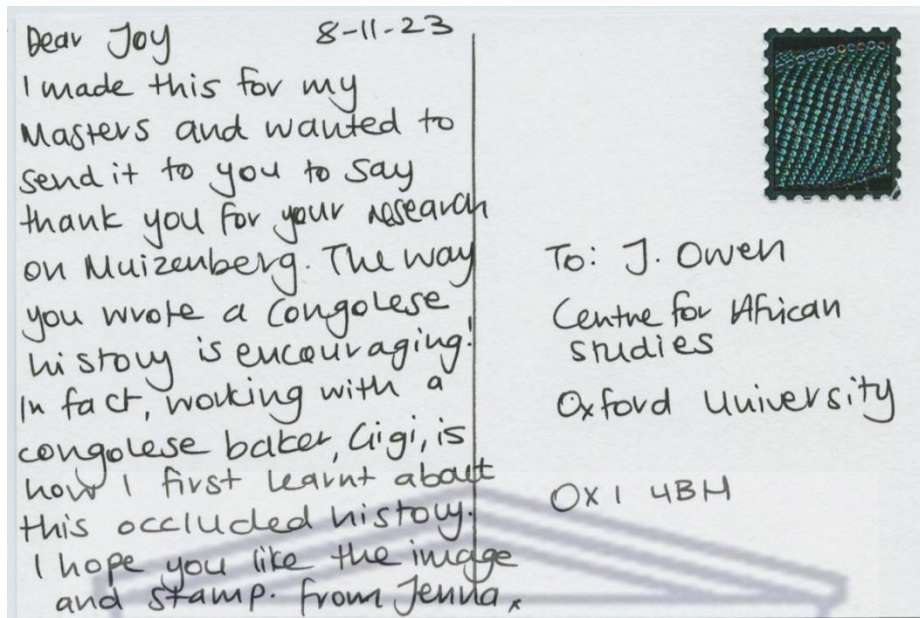 Dear Joy 8-11-23
I made this for my
Masters and wanted to
send it to you to say
thank you for your research
on Muizenberg. The way
you wrote a Congolese
history is encouraging!
In fact, working with a
congolese baker, Gigi, is
how I first learnt about
this occluded history.
I hope you like the image
and stamp. from Jenna x
To: J. Owen
Centre for African
studies
Oxford University
OX1 4BH